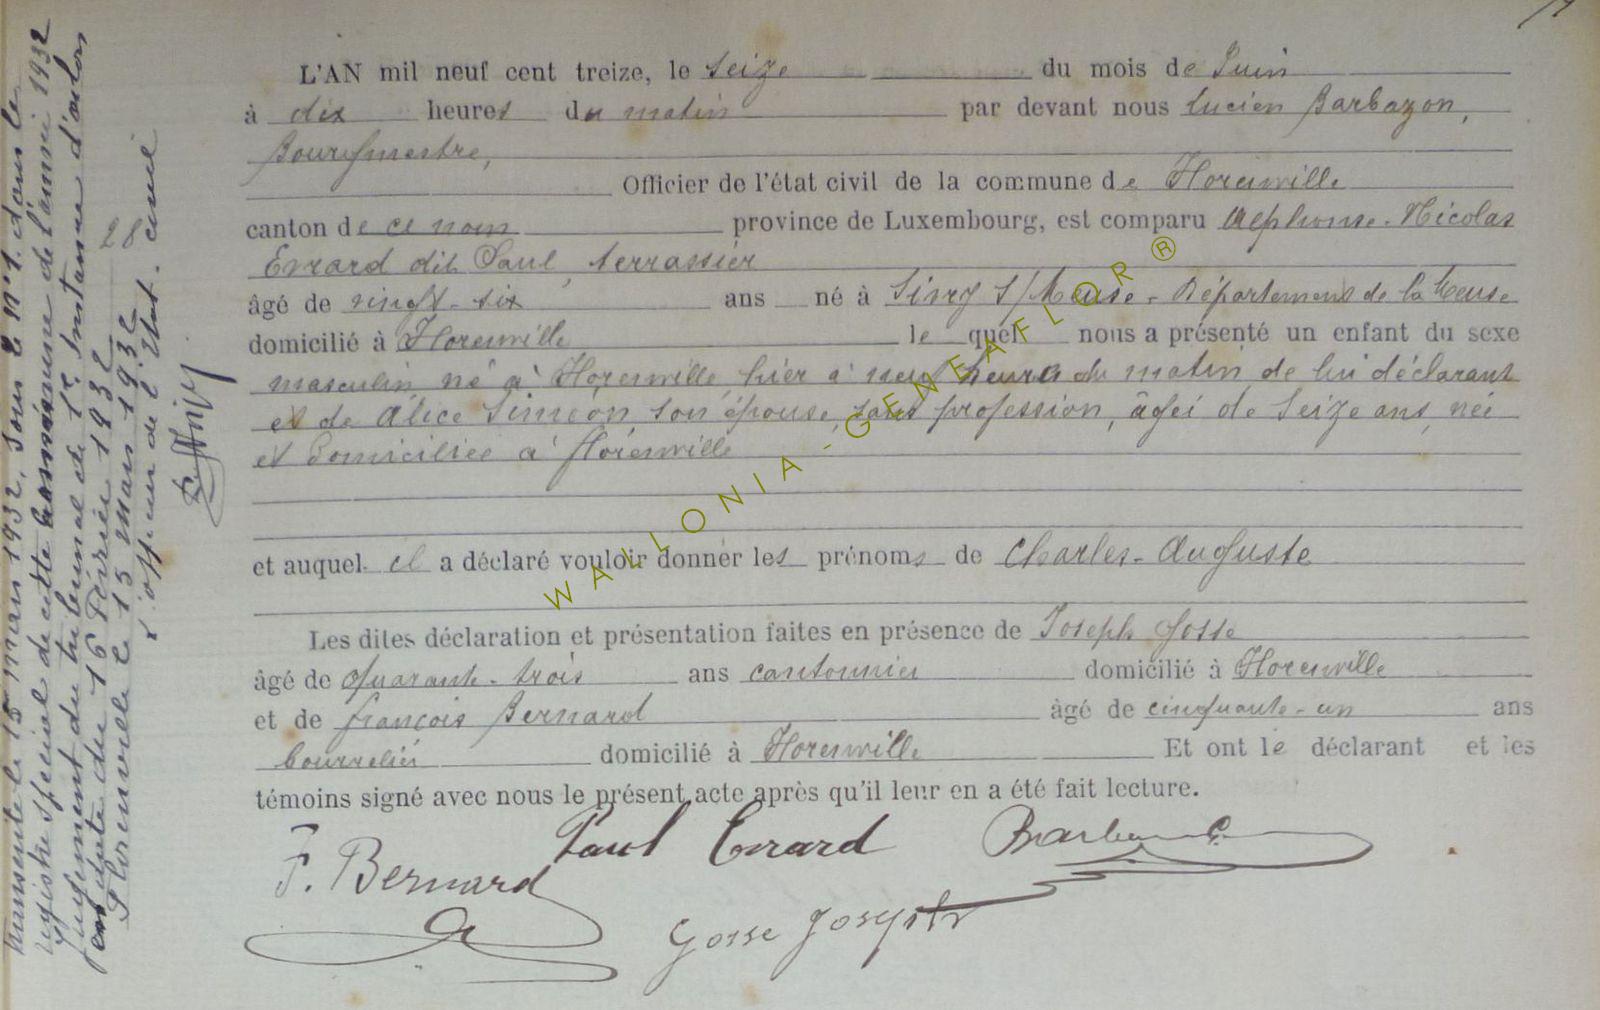 L'AN mil neuf cent treize, le seize du mois de Juin
à dix heures du matin par devant nous Lucien Barbazon,
Bourgmestre,
Officier de l'état civil de la commune de Florenville
canton de ce nom province de Luxembourg, est comparu Alphonse-Nicolas
Evrard dit Paul, terrassier
âgé de vingt-six ans né à Sivry S/Meuse - Département de la Meuse
domicilié à Florenville lequel nous a présenté un enfant du sexe
masculin, né à Florenville, hier à neuf heures du matin, de lui déclarant
et de Alice Siméon, son épouse, sans profession, âgée de seize ans, née
et domiciliée à Florenville
et auquel il a déclaré vouloir donner les prénoms de Charles-Auguste
Les dites déclaration et présentation faites en présence de Joseph Gosse
âgé de quarante-trois ans cantonnier domicilié à Florenville
et de François Bernard âgé de cinquante-un ans
bourrelier domicilié à Florenville Et ont le déclarant et les
témoins signé avec nous le présent acte après qu'il leur en a été fait lecture.
F. Bernard Paul Evrard
Gosse Joseph
le 15 mars 1932, sous le N° 1, dans le
registre spécial de cette commune de l'année 1932
jugement du tribunal de 1e Instance d'Arlon
en date du 16 Février 1932
Florenville le 15 mars 1932
L'officier de l'état civil
28
WALLONIA-GENEAFLOR ®